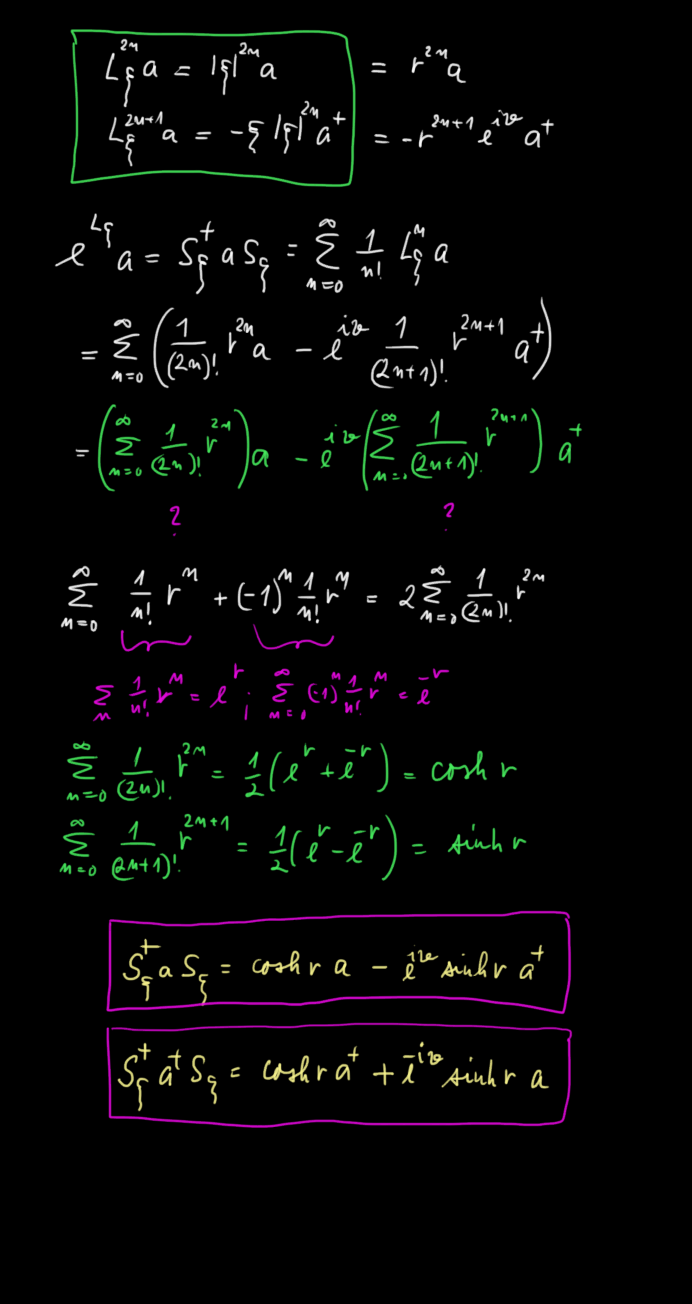 L_ξ^{2n} a = |ξ|^{2n} a = r^{2n} a
L_ξ^{2n+1} a = -ξ |ξ|^{2n} a^+ = -r^{2n+1} e^{iϑ} a^+
e^{L_ξ} a = S_ξ^+ a S_ξ = ∑_{n=0}^∞ 1/n! L_ξ^n a
= ∑_{n=0}^∞ (1/(2n)! r^{2n} a - e^{iϑ} 1/(2n+1)! r^{2n+1} a^+)
= (∑_{n=0}^∞ 1/(2n)! r^{2n}) a - e^{iϑ} (∑_{n=0}^∞ 1/(2n+1)! r^{2n+1}) a^+
? ?
∑_{n=0}^∞ 1/n! r^n + (-1)^n 1/n! r^n = 2 ∑_{n=0}^∞ 1/(2n)! r^{2n}
∑_n 1/n! r^n = e^r ; ∑_{n=0}^∞ (-1)^n 1/n! r^n = e^{-r}
∑_{n=0}^∞ 1/(2n)! r^{2n} = 1/2 (e^r + e^{-r}) = cosh r
∑_{n=0}^∞ 1/(2n+1)! r^{2n+1} = 1/2 (e^r - e^{-r}) = sinh r
S_ξ^+ a S_ξ = cosh r a - e^{iϑ} sinh r a^+
S_ξ^+ a^+ S_ξ = cosh r a^+ + e^{-iϑ} sinh r a